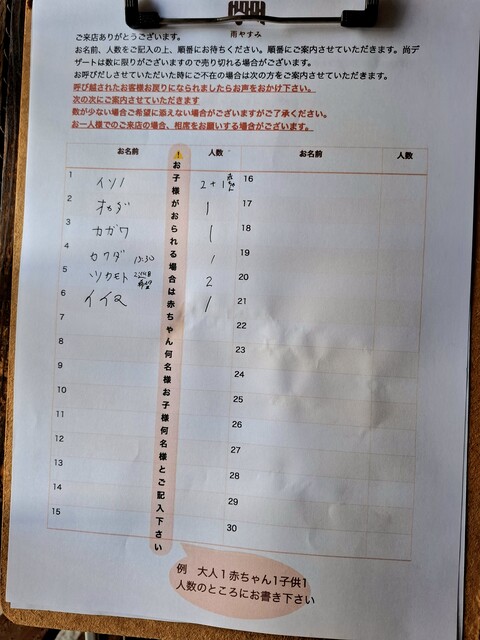 雨やすみ
ご来店ありがとうございます。
お名前、人数をご記入の上、順番にお待ちください。順番にご案内させていただきます。尚デ
ザートは数に限りがございますので売り切れる場合がございます。
お呼びだしさせていただいた時にご不在の場合は次の方をご案内させていただきます。
呼び越されたお客様お戻りになられましたらお声をおかけ下さい。
次の次にご案内させていただきます
数が少ない場合ご希望に添えない場合がございますがご了承ください。
お一人様でのご来店の場合、相席をお願いする場合がございます。
お名前 人数 お名前 人数
1 イソノ 2+1赤ちゃん 16
2 オカダ 1 17
3 カガワ 1 18
4 カクダ 13:30 1 19
5 ツカモト 希望 2 20
6 イイヌ 1 21
7 22
8 23
9 24
10 25
11 26
12 27
13 28
14 29
15 30
⚠お子様がおられる場合は赤ちゃん何名様お子様何名様とご記入下さい
例 大人1赤ちゃん1子供1
人数のところにお書き下さい